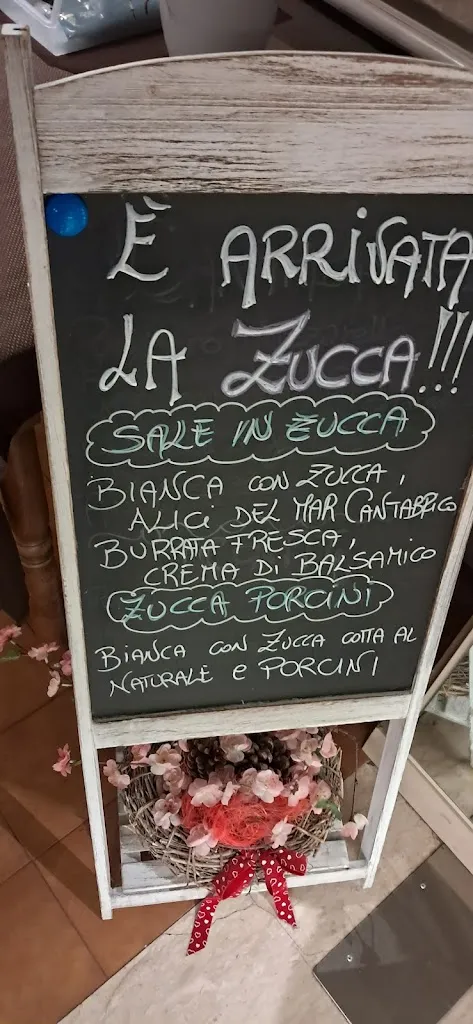 È ARRIVATA
LA ZUCCA!!!
SALE IN ZUCCA
BIANCA CON ZUCCA,
ALICI DEL MAR CANTABRICO
BURRATA FRESCA,
CREMA DI BALSAMICO
ZUCCA PORCINI
BIANCA CON ZUCCA COTTA AL
NATURALE e PORCINI